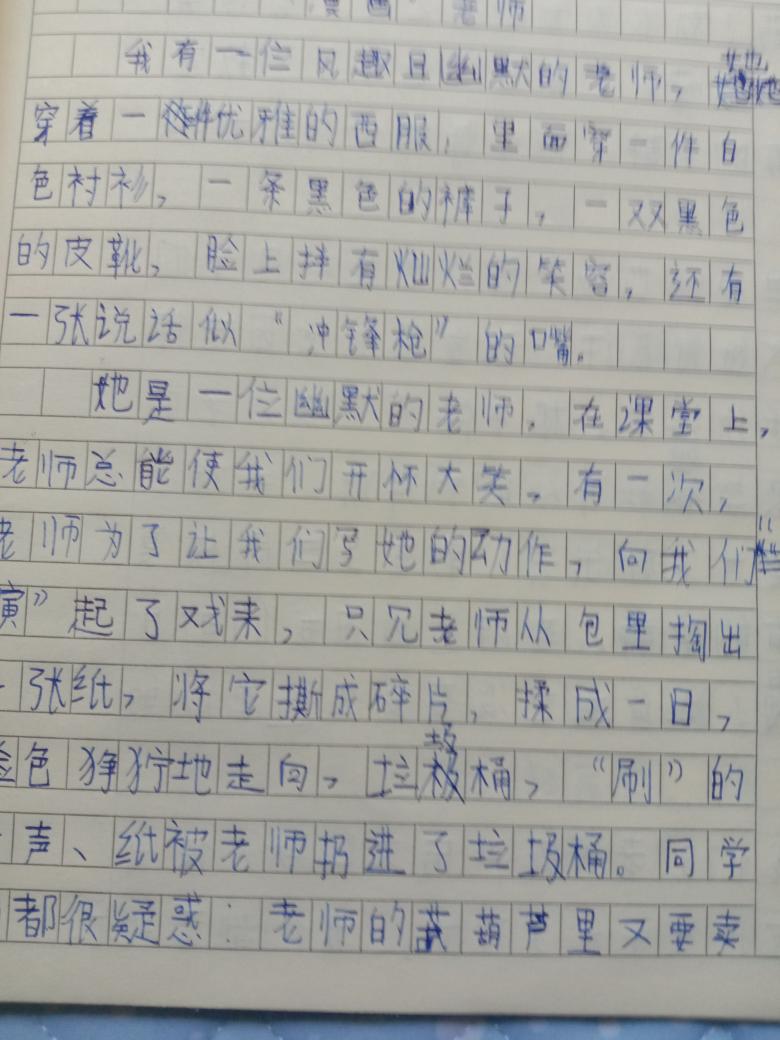 漫画 老师
我有一位风趣且幽默的老师，她
穿着一件优雅的西服，里面穿一件白
色衬衫，一条黑色的裤子，一双黑色
的皮靴，脸上拌有灿烂的笑容，还有
一张说话似“冲锋枪”的嘴。
她是一位幽默的老师，在课堂上，
老师总能使我们开怀大笑，有一次，
老师为了让我们写她的动作，向我们“
演”起了戏来，只见老师从包里掏出
一张纸，将它撕成碎片，揉成一日，
脸色狰狞地走向，垃圾桶，“刷”的
一声、纸被老师扔进了垃圾桶。同学
都很疑惑：老师的葫芦里又要卖